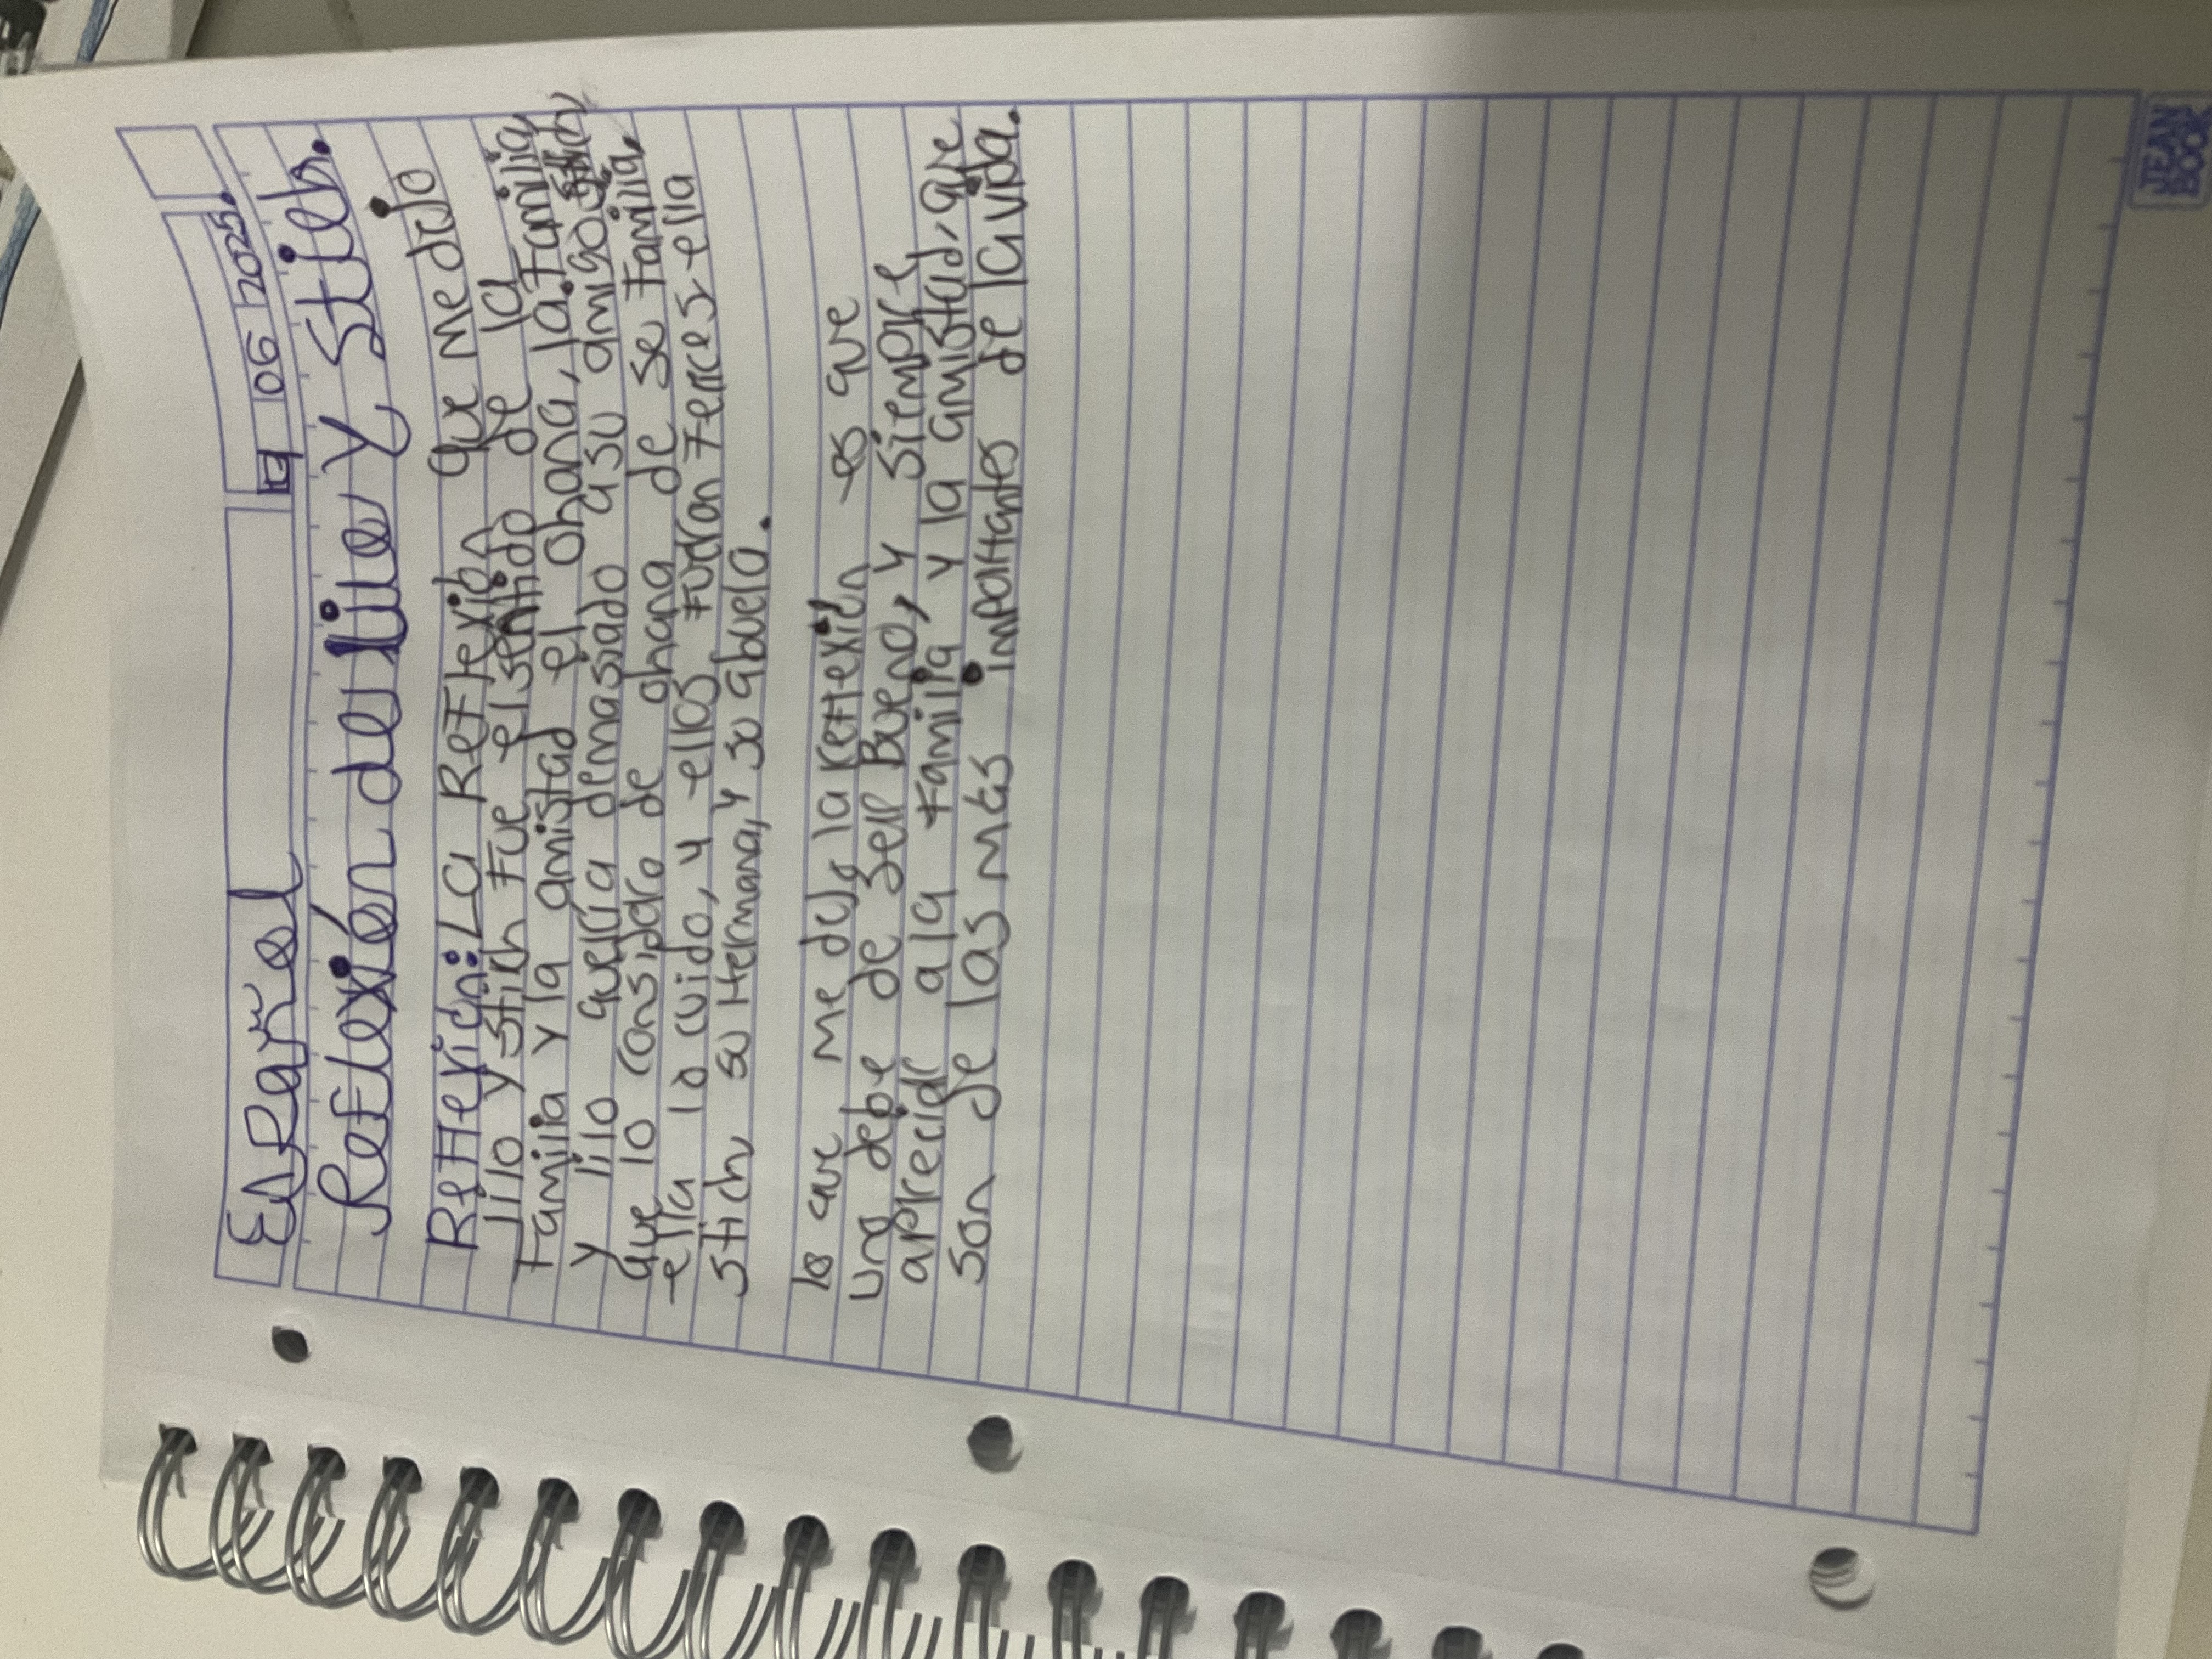 El Parcial
17 06 2025.
Reflexión de lilo y Stich.
Reflexión: La Reflexión que me dejo
lilo y Stich fue el sentido de la
familia y la amistad el ohana, la familia,
y lilo quería demasiado a su amigo Stich,
que lo considro de ohana de se familia.
ella lo cuido, y ellos fueron ferces, ella
Stich su Hermana, y su abuela.
lo que me dejo la Reflexión es que
uno debe de ser Bueno, y siempre
apreciar a la familia y la amistad, que
son de las más importantes de la vida.
JEAN
BOOK